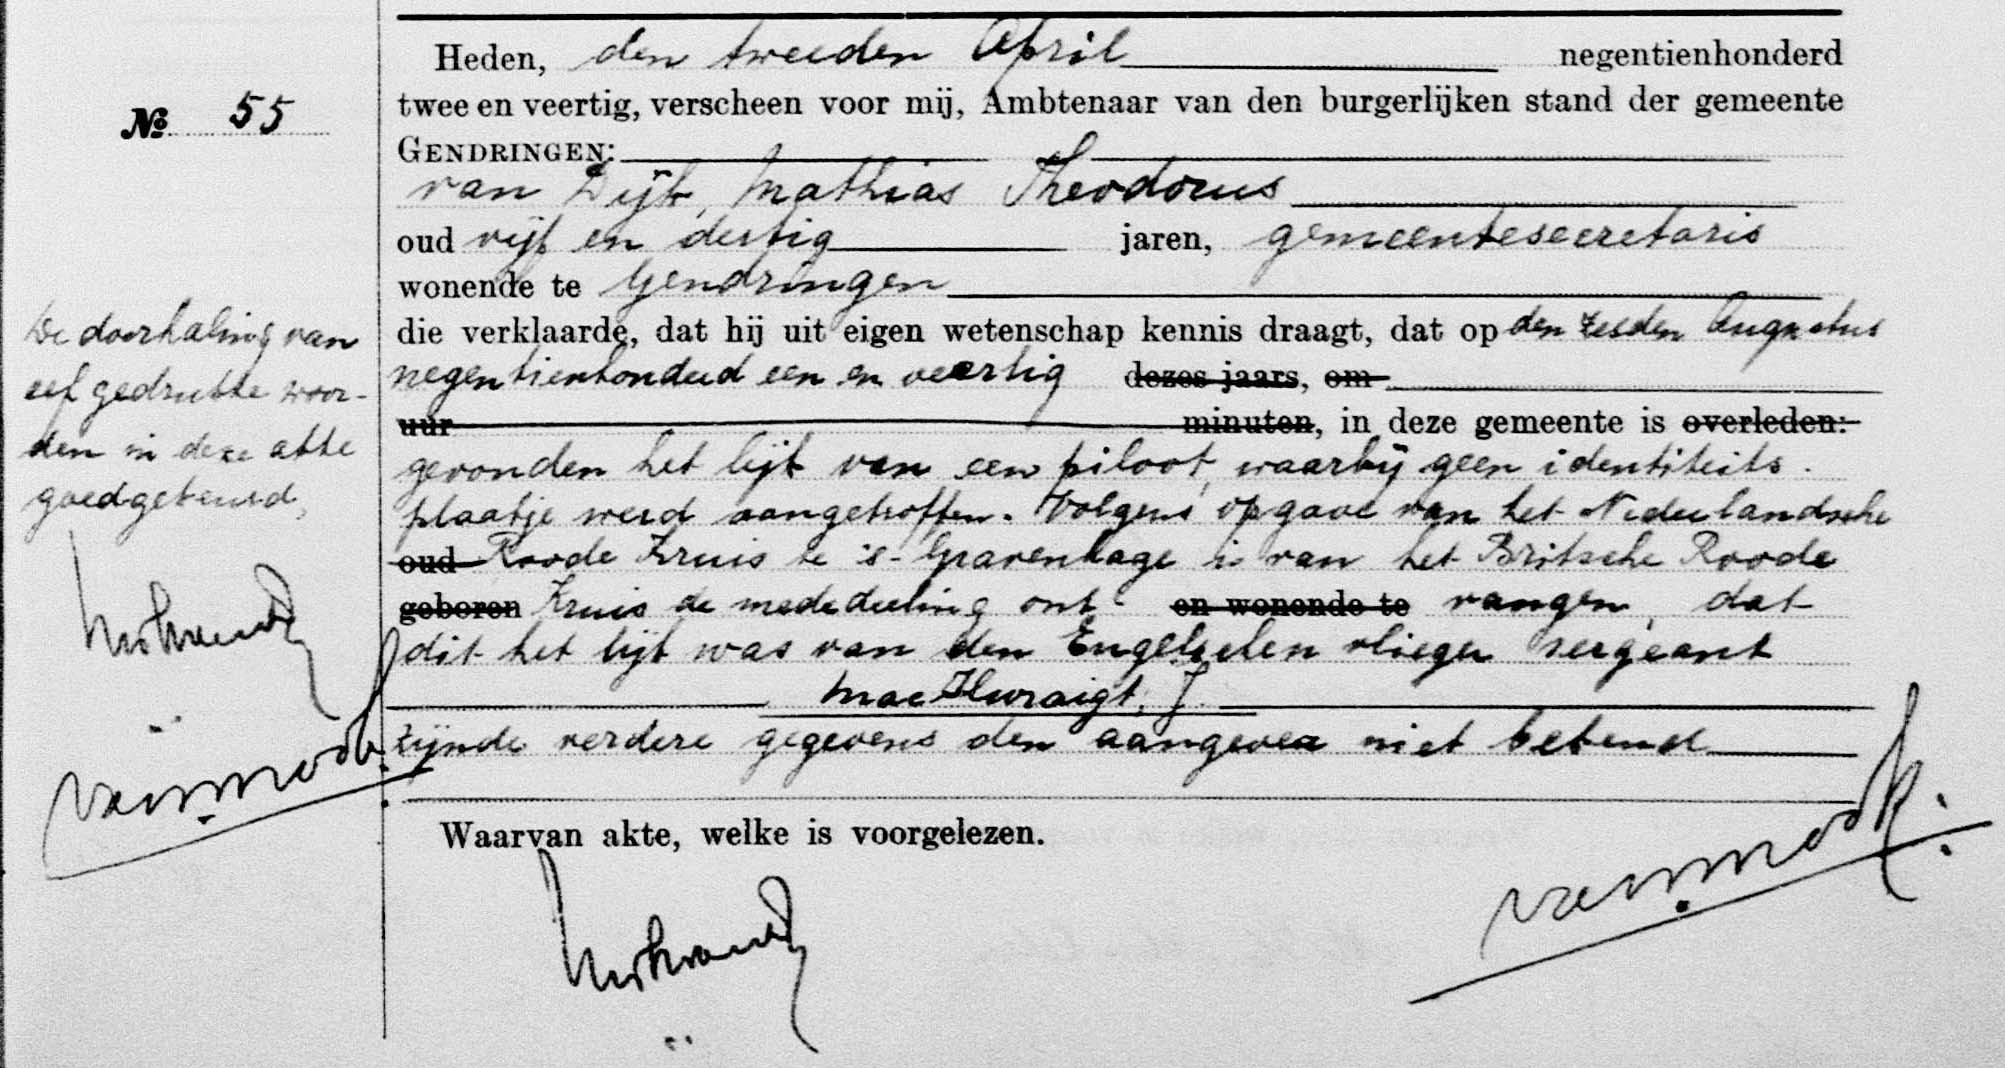 Heden, den tweeden April negentienhonderd
№ 55
twee en veertig, verscheen voor mij, Ambtenaar van den burgerlijken stand der gemeente
GENDRINGEN:
van Dijk, Mathias Theodorus
oud vijf en dertig jaren, gemeentesecretaris
wonende te Gendringen
die verklaarde, dat hij uit eigen wetenschap kennis draagt, dat op den zesden Augustus
negentienhonderd een en veertig dezes jaars, om
uur minuten, in deze gemeente is overleden:
gevonden het lijk van een piloot, waarbij geen identiteits
plaatje werd aangetroffen. Volgens opgave van het Nederlandsche
oud Roode Kruis te 's-Gravenhage is van het Britsche Roode
geboren Kruis de mededeeling ont- en wonende te vangen, dat
dit het lijk was van den Engelschen vlieger sergeant
Mac Ilwraigt, J.
zijnde verdere gegevens den aangever niet bekend
Waarvan akte, welke is voorgelezen.
De doorhaling van
elf gedrukte woor-
den in deze akte
goedgekeurd,